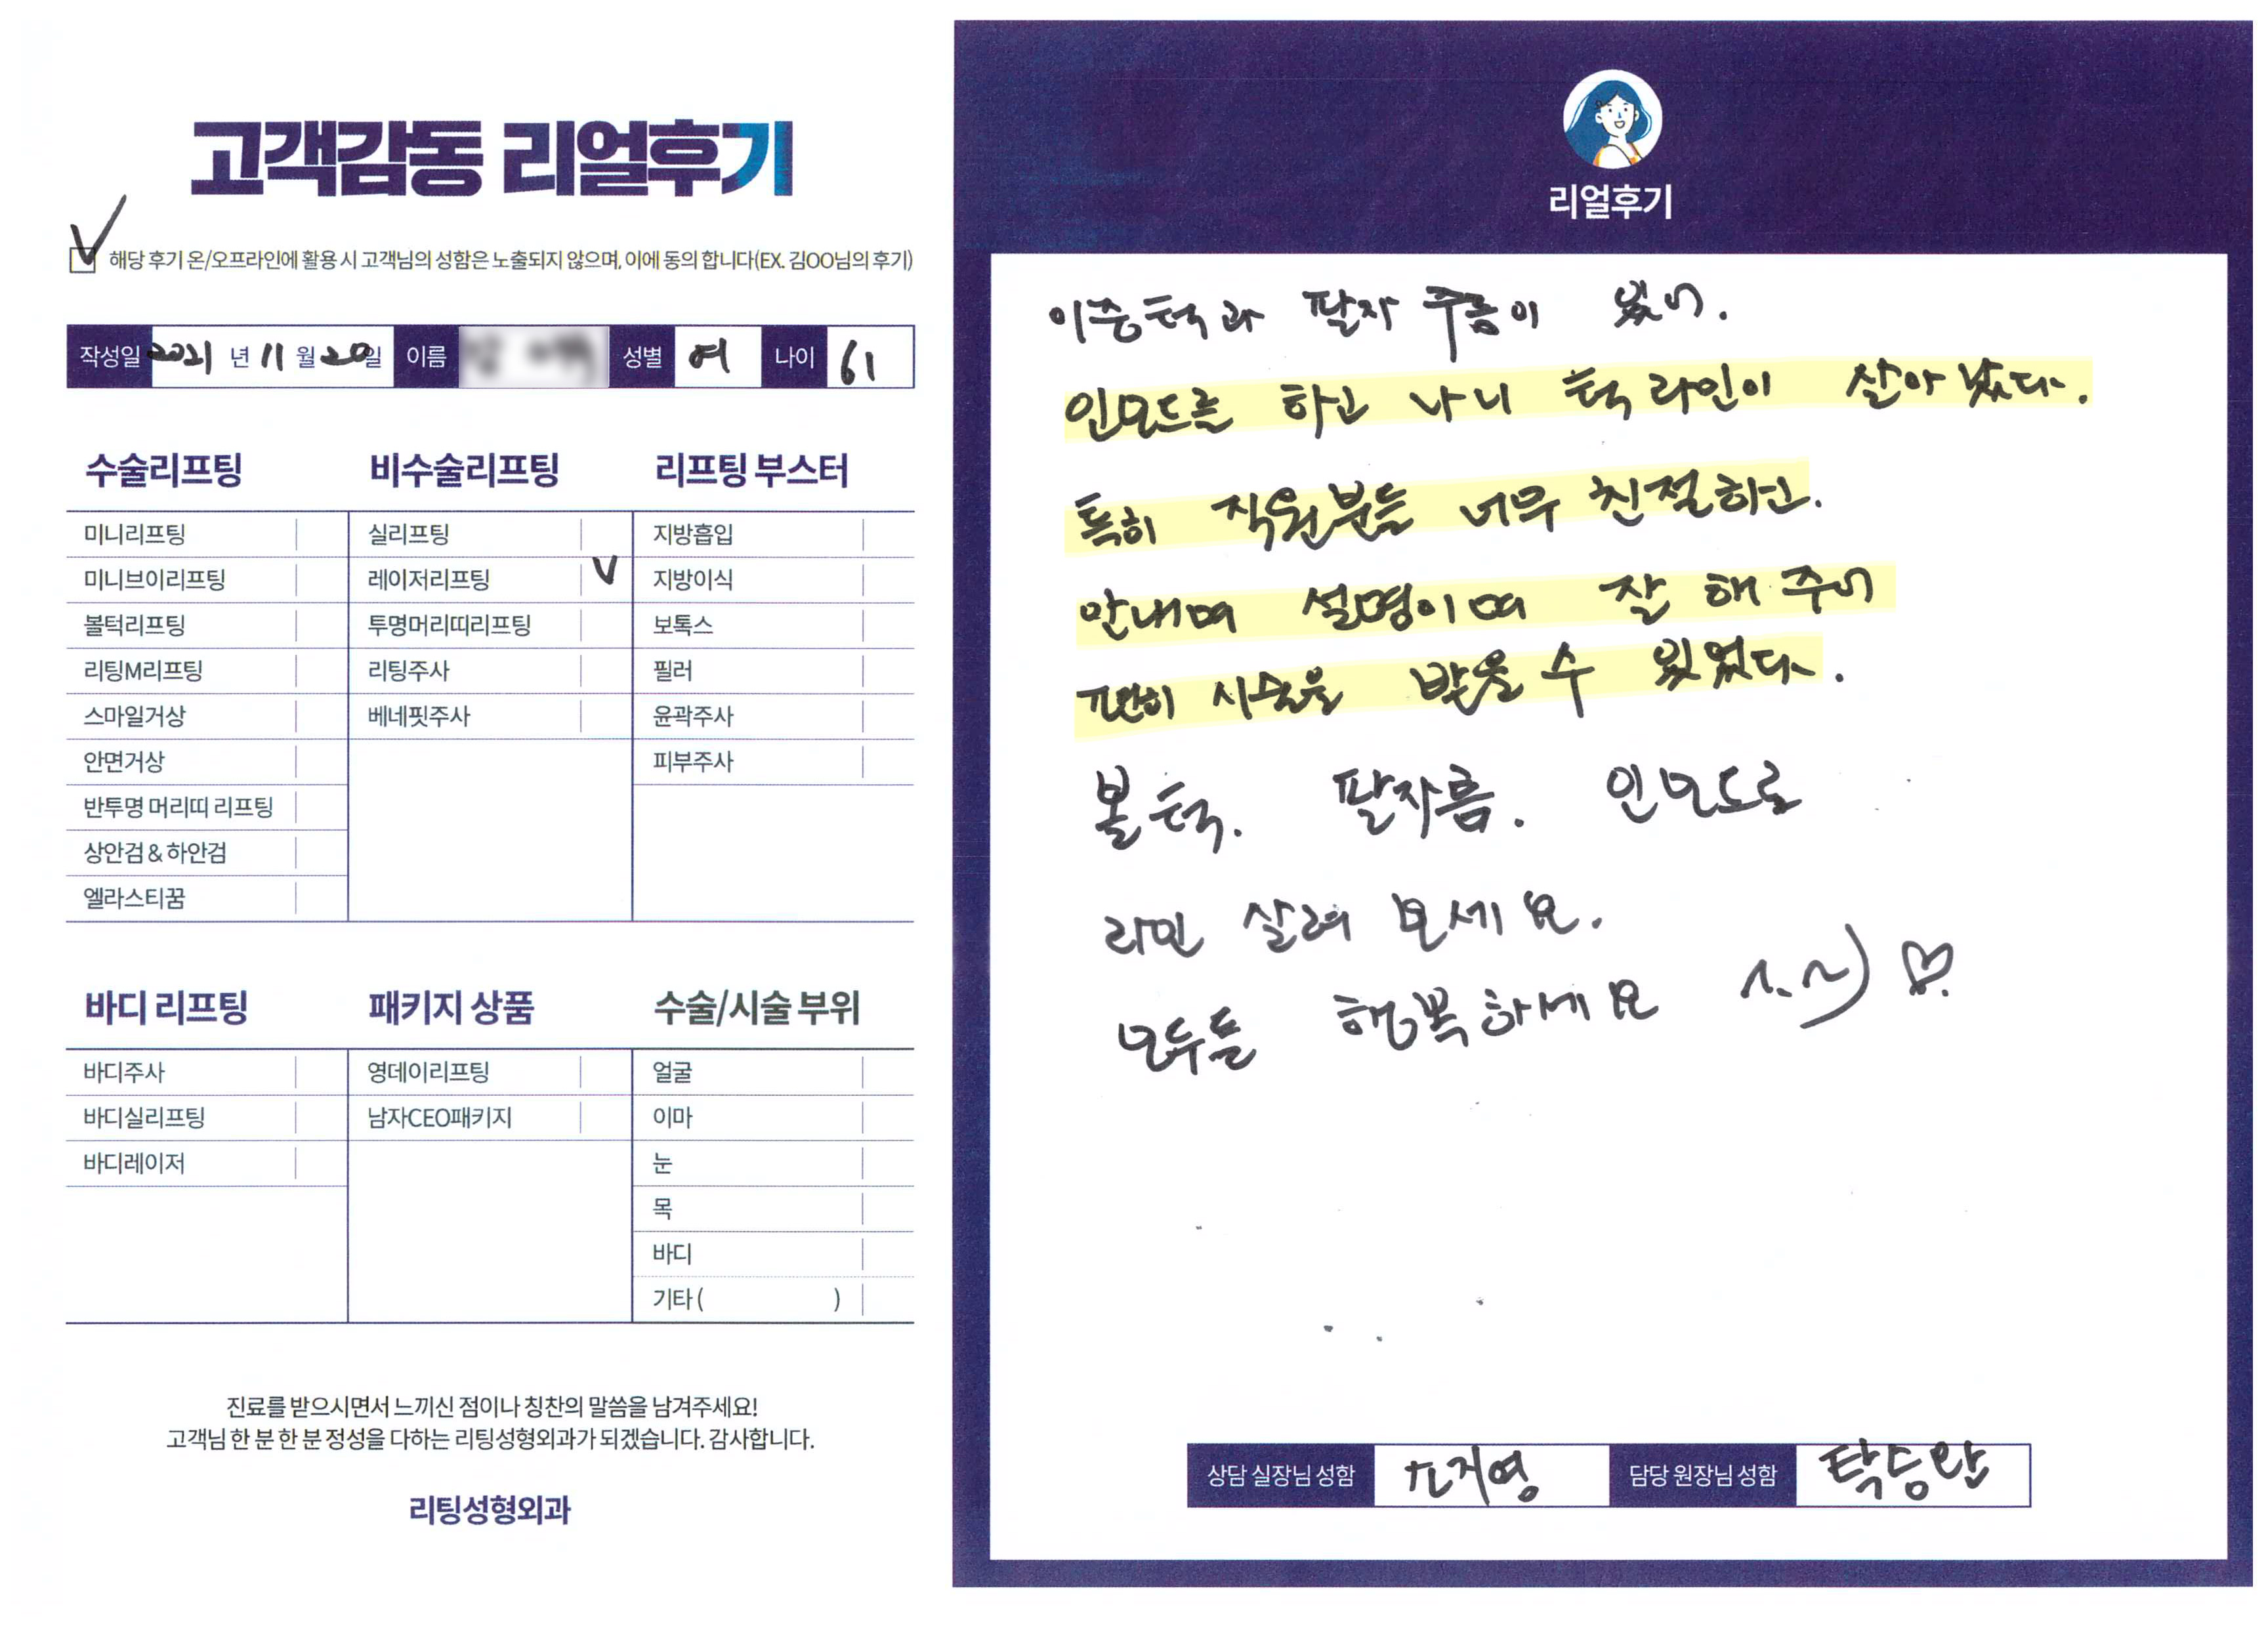 고객감동 리얼후기
해당 후기 온/오프라인에 활용 시 고객님의 성함은 노출되지 않으며, 이에 동의 합니다(EX. 김OO님의 후기)
작성일 2021 년 11 월 20일 이름 성별 여 나이 61
수술리프팅
미니리프팅
미니브이리프팅
볼턱리프팅
리팅M리프팅
스마일거상
안면거상
반투명 머리띠 리프팅
상안검 & 하안검
엘라스티꿈
비수술리프팅
실리프팅
레이저리프팅 V
투명머리띠리프팅
리팅주사
베네핏주사
리프팅 부스터
지방흡입
지방이식
보톡스
필러
윤곽주사
피부주사
바디 리프팅
바디주사
바디실리프팅
바디레이저
패키지 상품
영데이리프팅
남자CEO패키지
수술/시술 부위
얼굴
이마
눈
목
바디
기타 ( )
진료를 받으시면서 느끼신 점이나 칭찬의 말씀을 남겨주세요!
고객님 한 분 한 분 정성을 다하는 리팅성형외과가 되겠습니다. 감사합니다.
리팅성형외과
리얼후기
이중턱과 팔자 주름이 있어.
인모드를 하고 나니 턱 라인이 살아 났다.
특히 직원분들 너무 친절하고.
안내며 설명이며 잘 해 주어
편히 시술을 받을 수 있었다.
볼턱. 팔자름. 인모드로
라인 살려 보세요.
모두들 행복하세요 ^.^) ♡
상담 실장님 성함 지영 담당 원장님 성함 탁승완